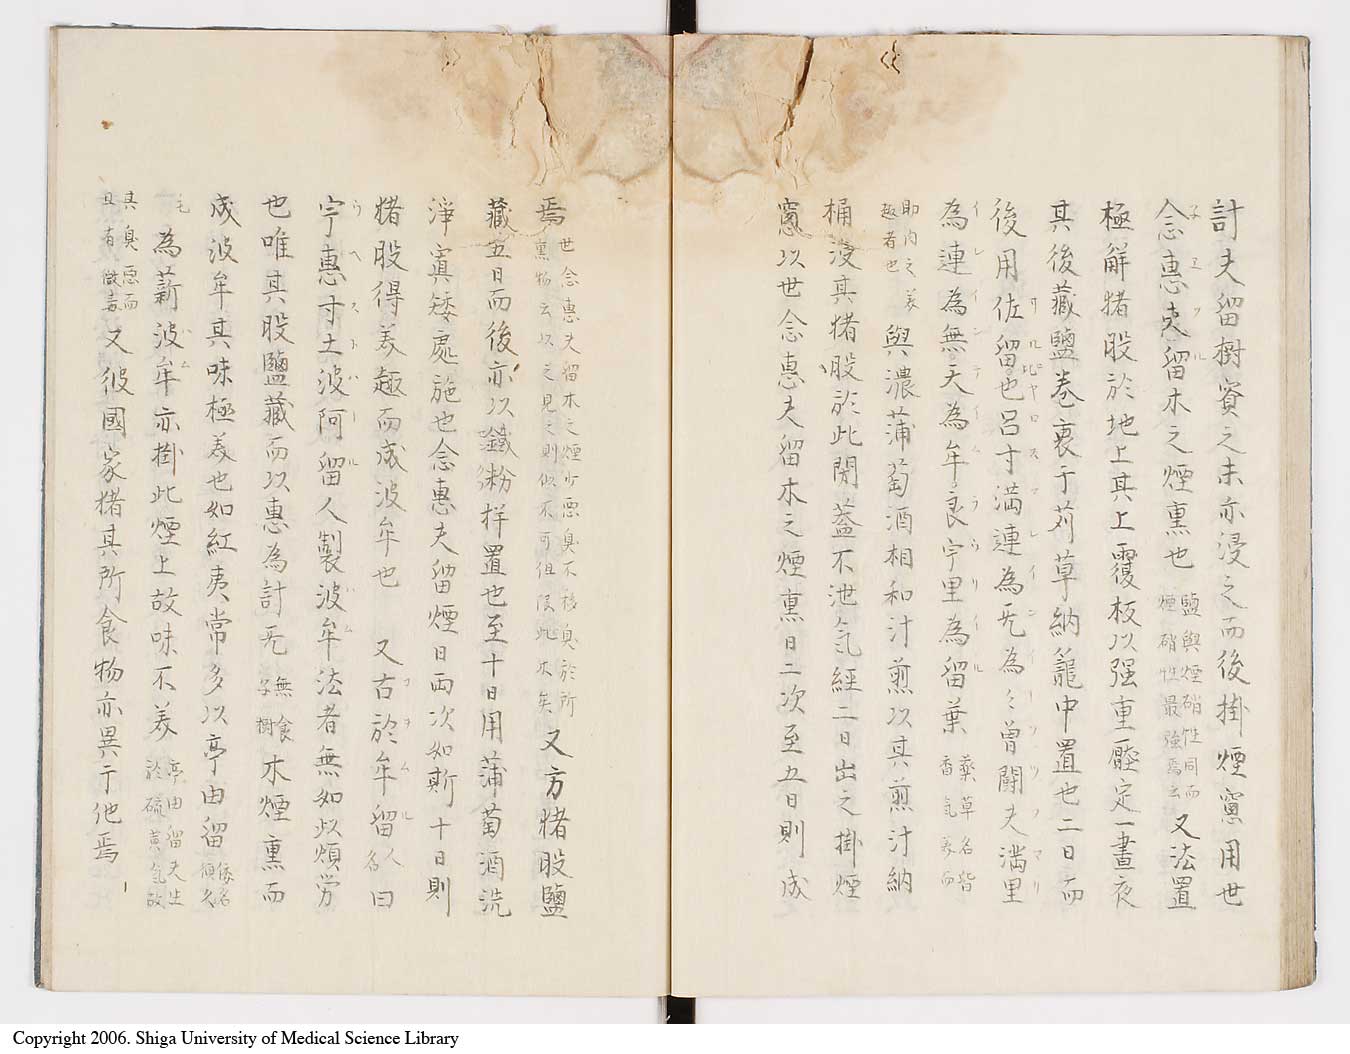 計夫留樹實之末亦浸之而後掛煙窻用世
子エフル
念惠夫留木之煙熏也 鹽與煙硝性同而煙硝性最強焉云 又法置
極鮮猪股於地上其上覆板以强重壓定一晝夜
其後藏鹽卷裹于苅草納籠中置也二日而
後用佐留也呂寸満連為无為々曽闢夫満里
イレインテイムラウリイル
為連為無天為牟良宇里為留葉 藥草名皆香氣美而
助肉之美趣者也 與濃蒲萄酒相和汁煎以其煎汁納
桶浸其猪股於此閉葢不泄气經二日出之掛煙
窻以世念惠夫留木之煙熏日二次至五日則成
焉 世念惠夫留木之煙少惡臭不移臭於所熏物云以之見之則似不可但限此木矣 又方猪股鹽
藏五日而後亦以鐵粉样置也至十日用蒲萄酒洗
淨寘矮處施也念惠夫留煙日兩次如斯十日則
猪股得美趣而成波牟也 又古於牟留人名曰
ウヘストハールハム
宇惠寸土波阿留人製波牟法者無如此煩労
也唯其股鹽藏而以惠為計无 無食子樹 木煙熏而
成波牟其味極美也如紅夷常多以亭由留 倭名
モ
為薪波牟亦掛此煙上故味不美 亭由留夫生於硫黄気故
其臭惡而且有微毒 又彼國家猪其所食物亦異于他焉
Copyright 2006. Shiga University of Medical Science Library